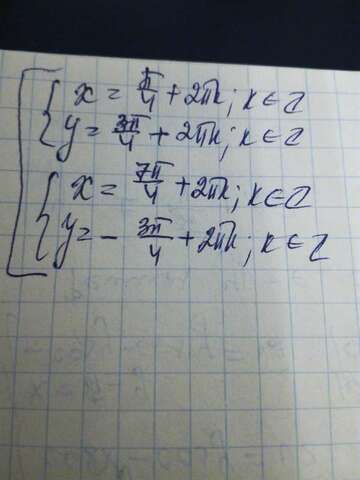 x = π/4 + 2πk; k ∈ Z
y = 3π/4 + 2πk; k ∈ Z
x = 7π/4 + 2πk; k ∈ Z
y = - 3π/4 + 2πk; k ∈ Z